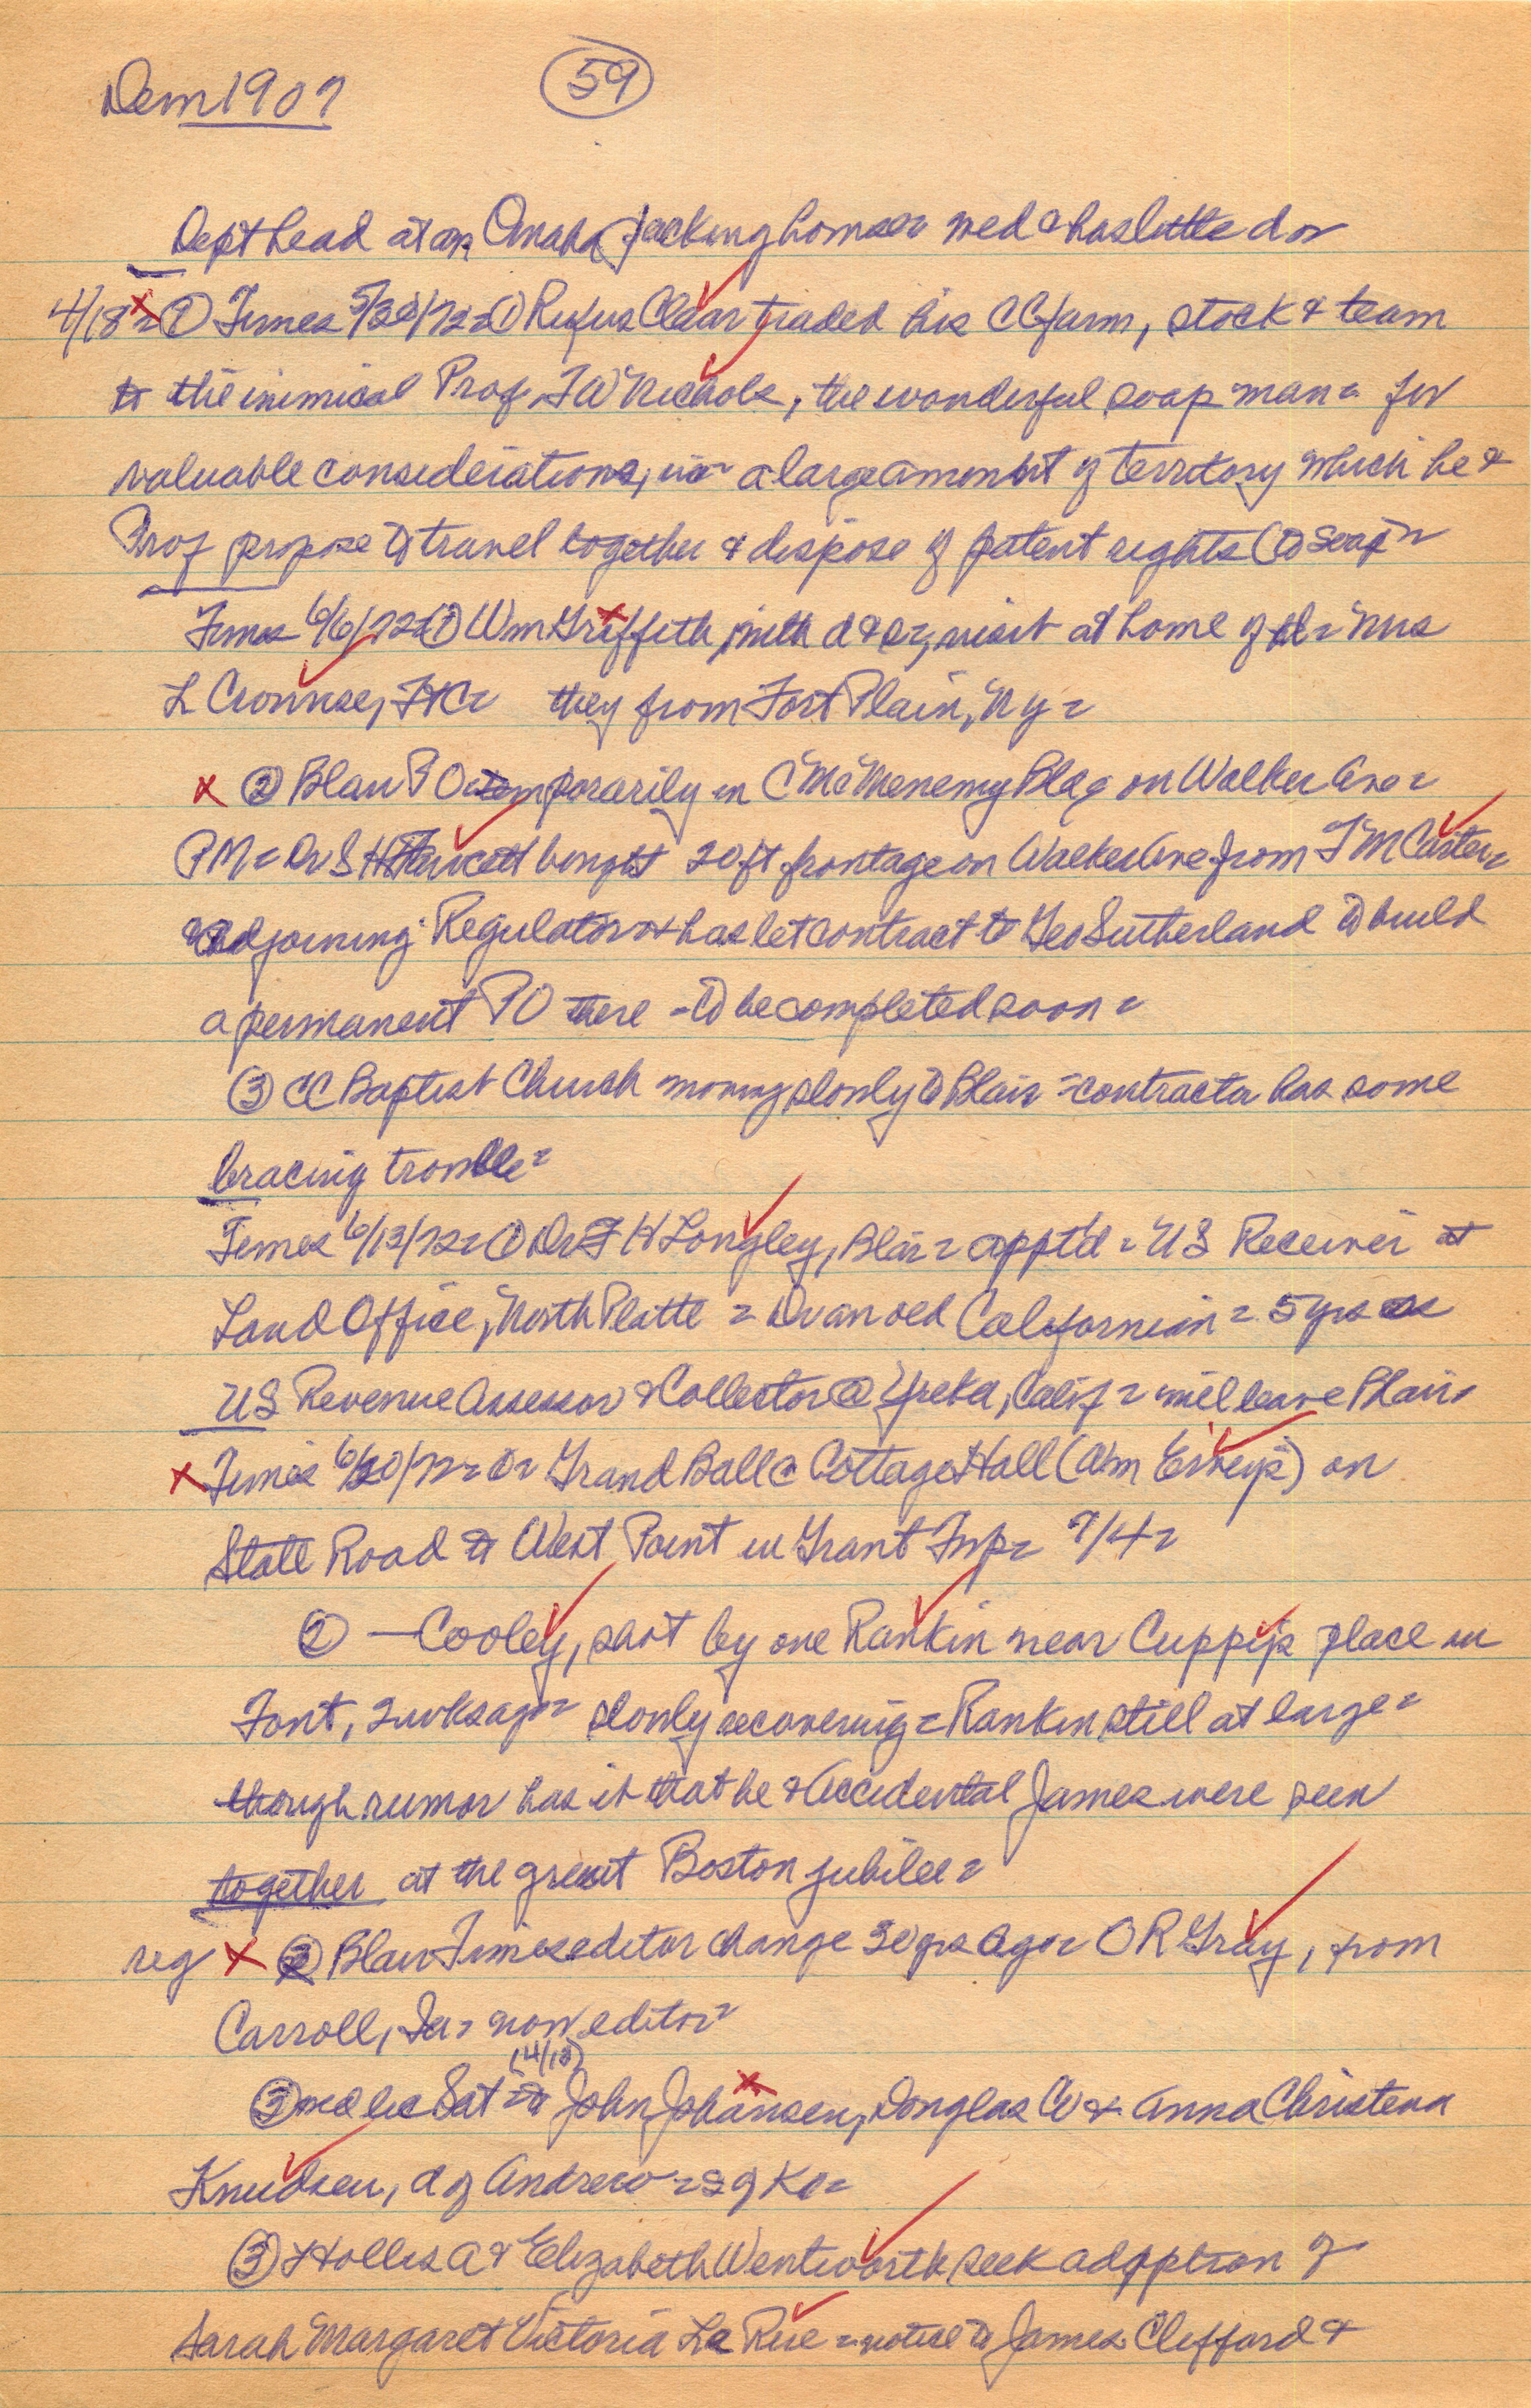 Dem 1907 (59)
Dept head at an Omaha packing house = wed Charlotte d or
4/18 = ① Times 5/30/72 = ① Rufus Clear traded his CC farm, stock & team
to the inimical Prof. T W Nichols, the wonderful soap man = for
valuable considerations, via = a large amount of territory which he &
Prof propose to travel together & dispose of patent rights (to soap =
Times 6/6/72 ① Wm Griffith, with d & s, visit at home of d = Mrs
L Crounse, Ft C = they from Fort Plain, N Y =
② Blair P O temporarily in C McMenemy Bldg on Walker Ave =
PM = Dr S H Fawcett bought 20 ft frontage on Walker Ave from T M Carter =
adjoining Regulator & has let contract to Geo Sutherland to build
a permanent P O there - to be completed soon =
③ CC Baptist Church moving slowly to Blair = contractor has some
bracing trouble =
Times 6/13/72 = ① Dr F H Longley, Blair = appt'd = US Receiver at
Land Office, North Platte = Dr an old Californian = 5 yrs as
US Revenue Assessor & Collector @ Yreka, Calif = will leave Blair,
Times 6/20/72 = ① = Grand Ball @ Cottage Hall (Wm ) on
State Road to West Point in Grant Twp = 7/4 =
② — Cooley, shot by one Rankin near Cuppy's place in
Font, 2 wks ago = slowly recovering = Rankin still at large =
though rumor has it that he & Accidental James were seen
together at the great Boston jubilee =
reg ② Blair Times editor change 30 yrs ago = O R Gray, from
Carroll, Ia = now editor =
(4/18)
③ med lic Sat = to John Johansen, Douglas Co & Anna Christena
Knudsen, d of Andrew = s of K =
③ Hollis A & Elizabeth Wentworth seek adoption of
Sarah Margaret Victoria La Rue = notice to James Clifford &